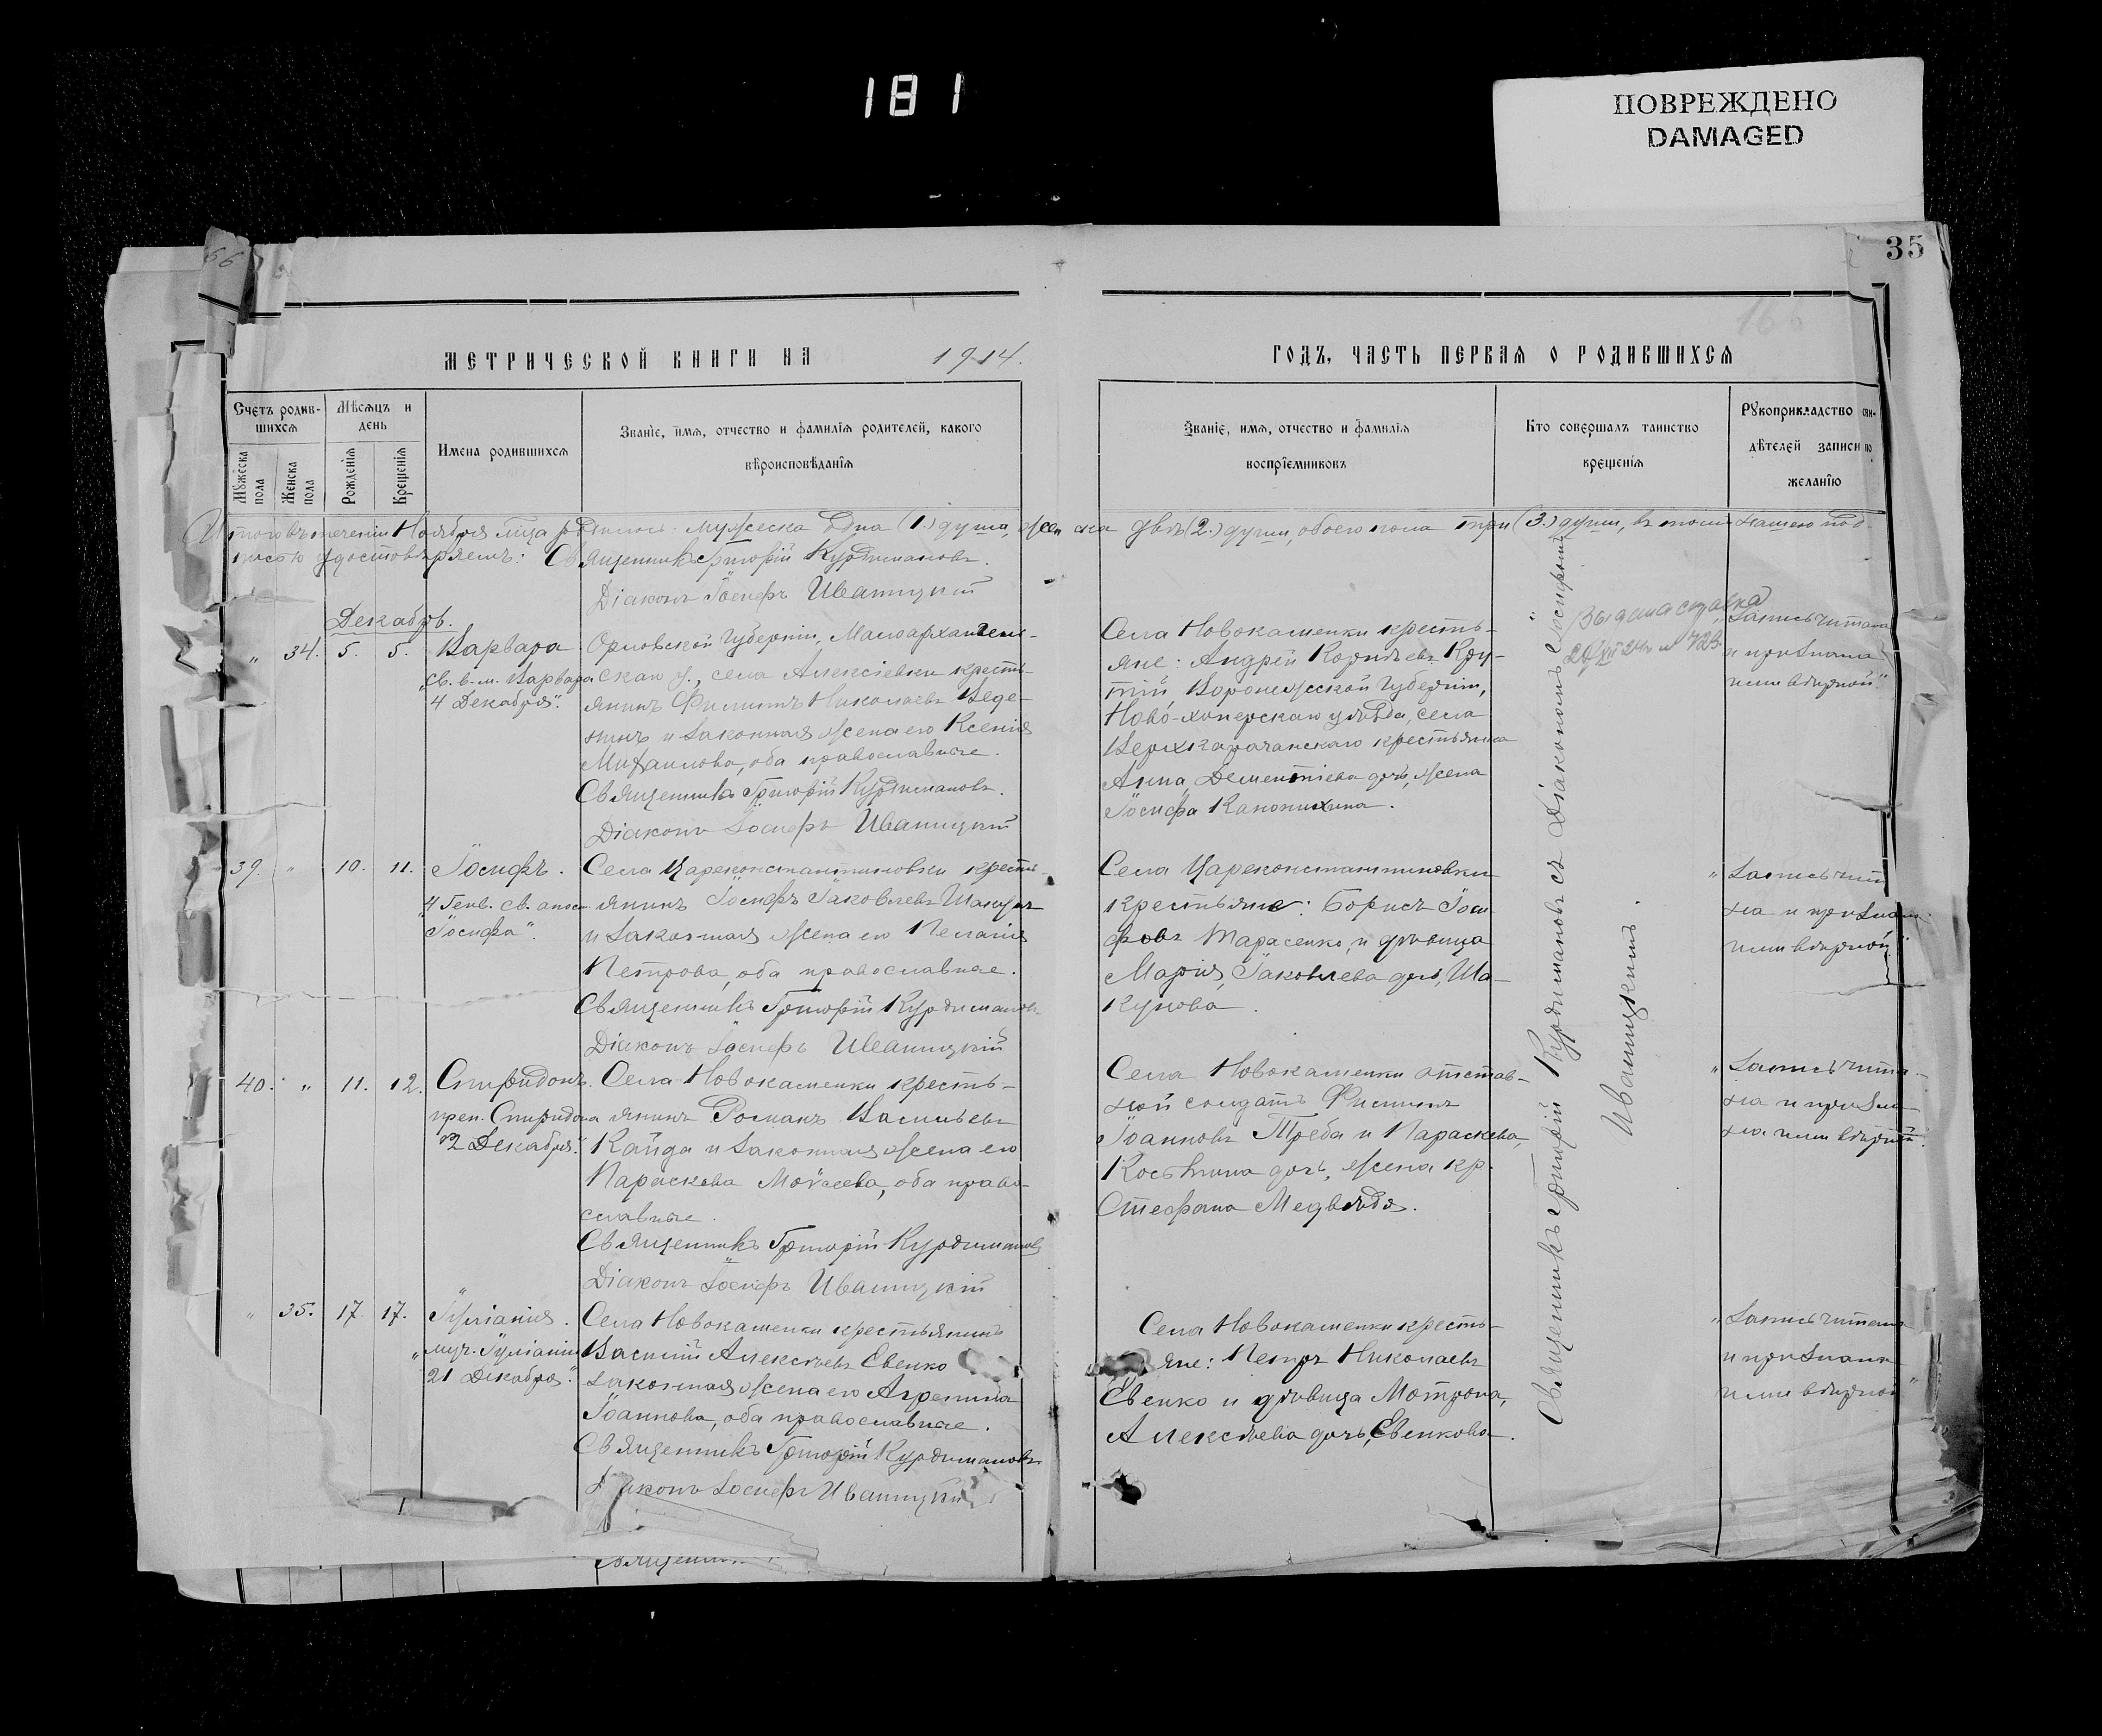 181
ПОВРЕЖДЕНО
DAMAGED
66
35
МЕТРИЧЕСКОЙ КНИГИ НА 1914.
ГОДЪ, ЧАСТЬ ПЕРВАЯ О РОДИВШИХСЯ
Счетъ родив-
шихся
Мѣсяцъ и
день
Мужеска
пола
Женска
пола
Рожденія
Крещенія
Имена родившихся
Званіе, имя, отчество и фамилія родителей, какого
вѣроисповѣданія
Званіе, имя, отчество и фамилія
воспріемниковъ
Кто совершалъ таинство
крещенія
Рукоприкладство сви-
дѣтелей записи по
желанію
Итого въ теченіи Ноября м-ца родилось: мужеска одна (1.) душа, женска двѣ (2.) души, обоего пола три (3.) души, въ томъ нашею под-
писью удостовѣряемъ: Священникъ Григорій Курдимановъ.
Діаконъ Іосифъ Иваницкій
Декабрь.
" 34. 5. 5. Варвара
„св. в.-м. Варвара
4 Декабря".
Орловской Губерніи, Малоархангель-
скаго у., села Алексіевки кресть-
янинъ Филиппъ Николаевъ Веде-
нинъ и законная жена его Ксенія
Михаилова, оба православные.
Священникъ Григорій Курдимановъ.
Діаконъ Іосифъ Иваницкій
Села Новокаменки кресть-
яне: Андрей Корнѣевъ Кру-
тій Воронежской Губерніи,
Ново-хоперскаго уѣзда, села
Верхкарачанскаго крестьянка
Анна, Дементіева дочь, жена
Іосифа Канонихина.
Выдана справка
Запись читана
и признана
нами вѣрной".
39. " 10. 11. Іосифъ.
„4 Генв. св. апост.
Іосифа".
Села Цареконстантиновки кресть-
янинъ Іосифъ Іаковлевъ Шакунъ
и законная жена его Пелагія
Петрова, оба православные.
Священникъ Григорій Курдимановъ.
Діаконъ Іосифъ Иваницкій
Села Цареконстантиновки
крестьяне: Борисъ Іоси-
фовъ Тарасенко, и дѣвица
Марія, Іаковлева дочь, Ша-
кунова.
„Запись чита
на и признан
нами вѣрной"
40. " 11. 12. Спиридонъ.
преп. Спиридона
12 Декабря".
Села Новокаменки кресть-
янинъ Романъ Васильевъ
Кайда и законная жена его
Параскева Моѵсеева, оба право-
славные.
Священникъ Григорій Курдимановъ
Діаконъ Іосифъ Иваницкій
Села Новокаменки отстав-
ной солдатъ Филиппъ
Іоанновъ Треба и Параскева,
Косьмина дочь, жена кр.
Стефана Медвѣдя.
„Запись чита-
на и призна-
на нами вѣрной".
" 35. 17. 17. Іуліанія.
„муч. Іуліаніи
21 Декабря".
Села Новокаменки крестьянинъ
Василій Алексѣевъ Евенко
законная жена его Агрепина
Іоаннова, оба православные.
Священникъ Григорій Курдимановъ
Діаконъ Іосифъ Иваницкій
Села Новокаменки кресть-
яне: Петръ Николаевъ
Евенко и дѣвица Матрона,
Алексѣева дочь, Евенкова.
„Запись читана
и признана
нами вѣрной"
Священникъ Григорій Курдимановъ съ Діакономъ Іосифомъ
Иваницкимъ.